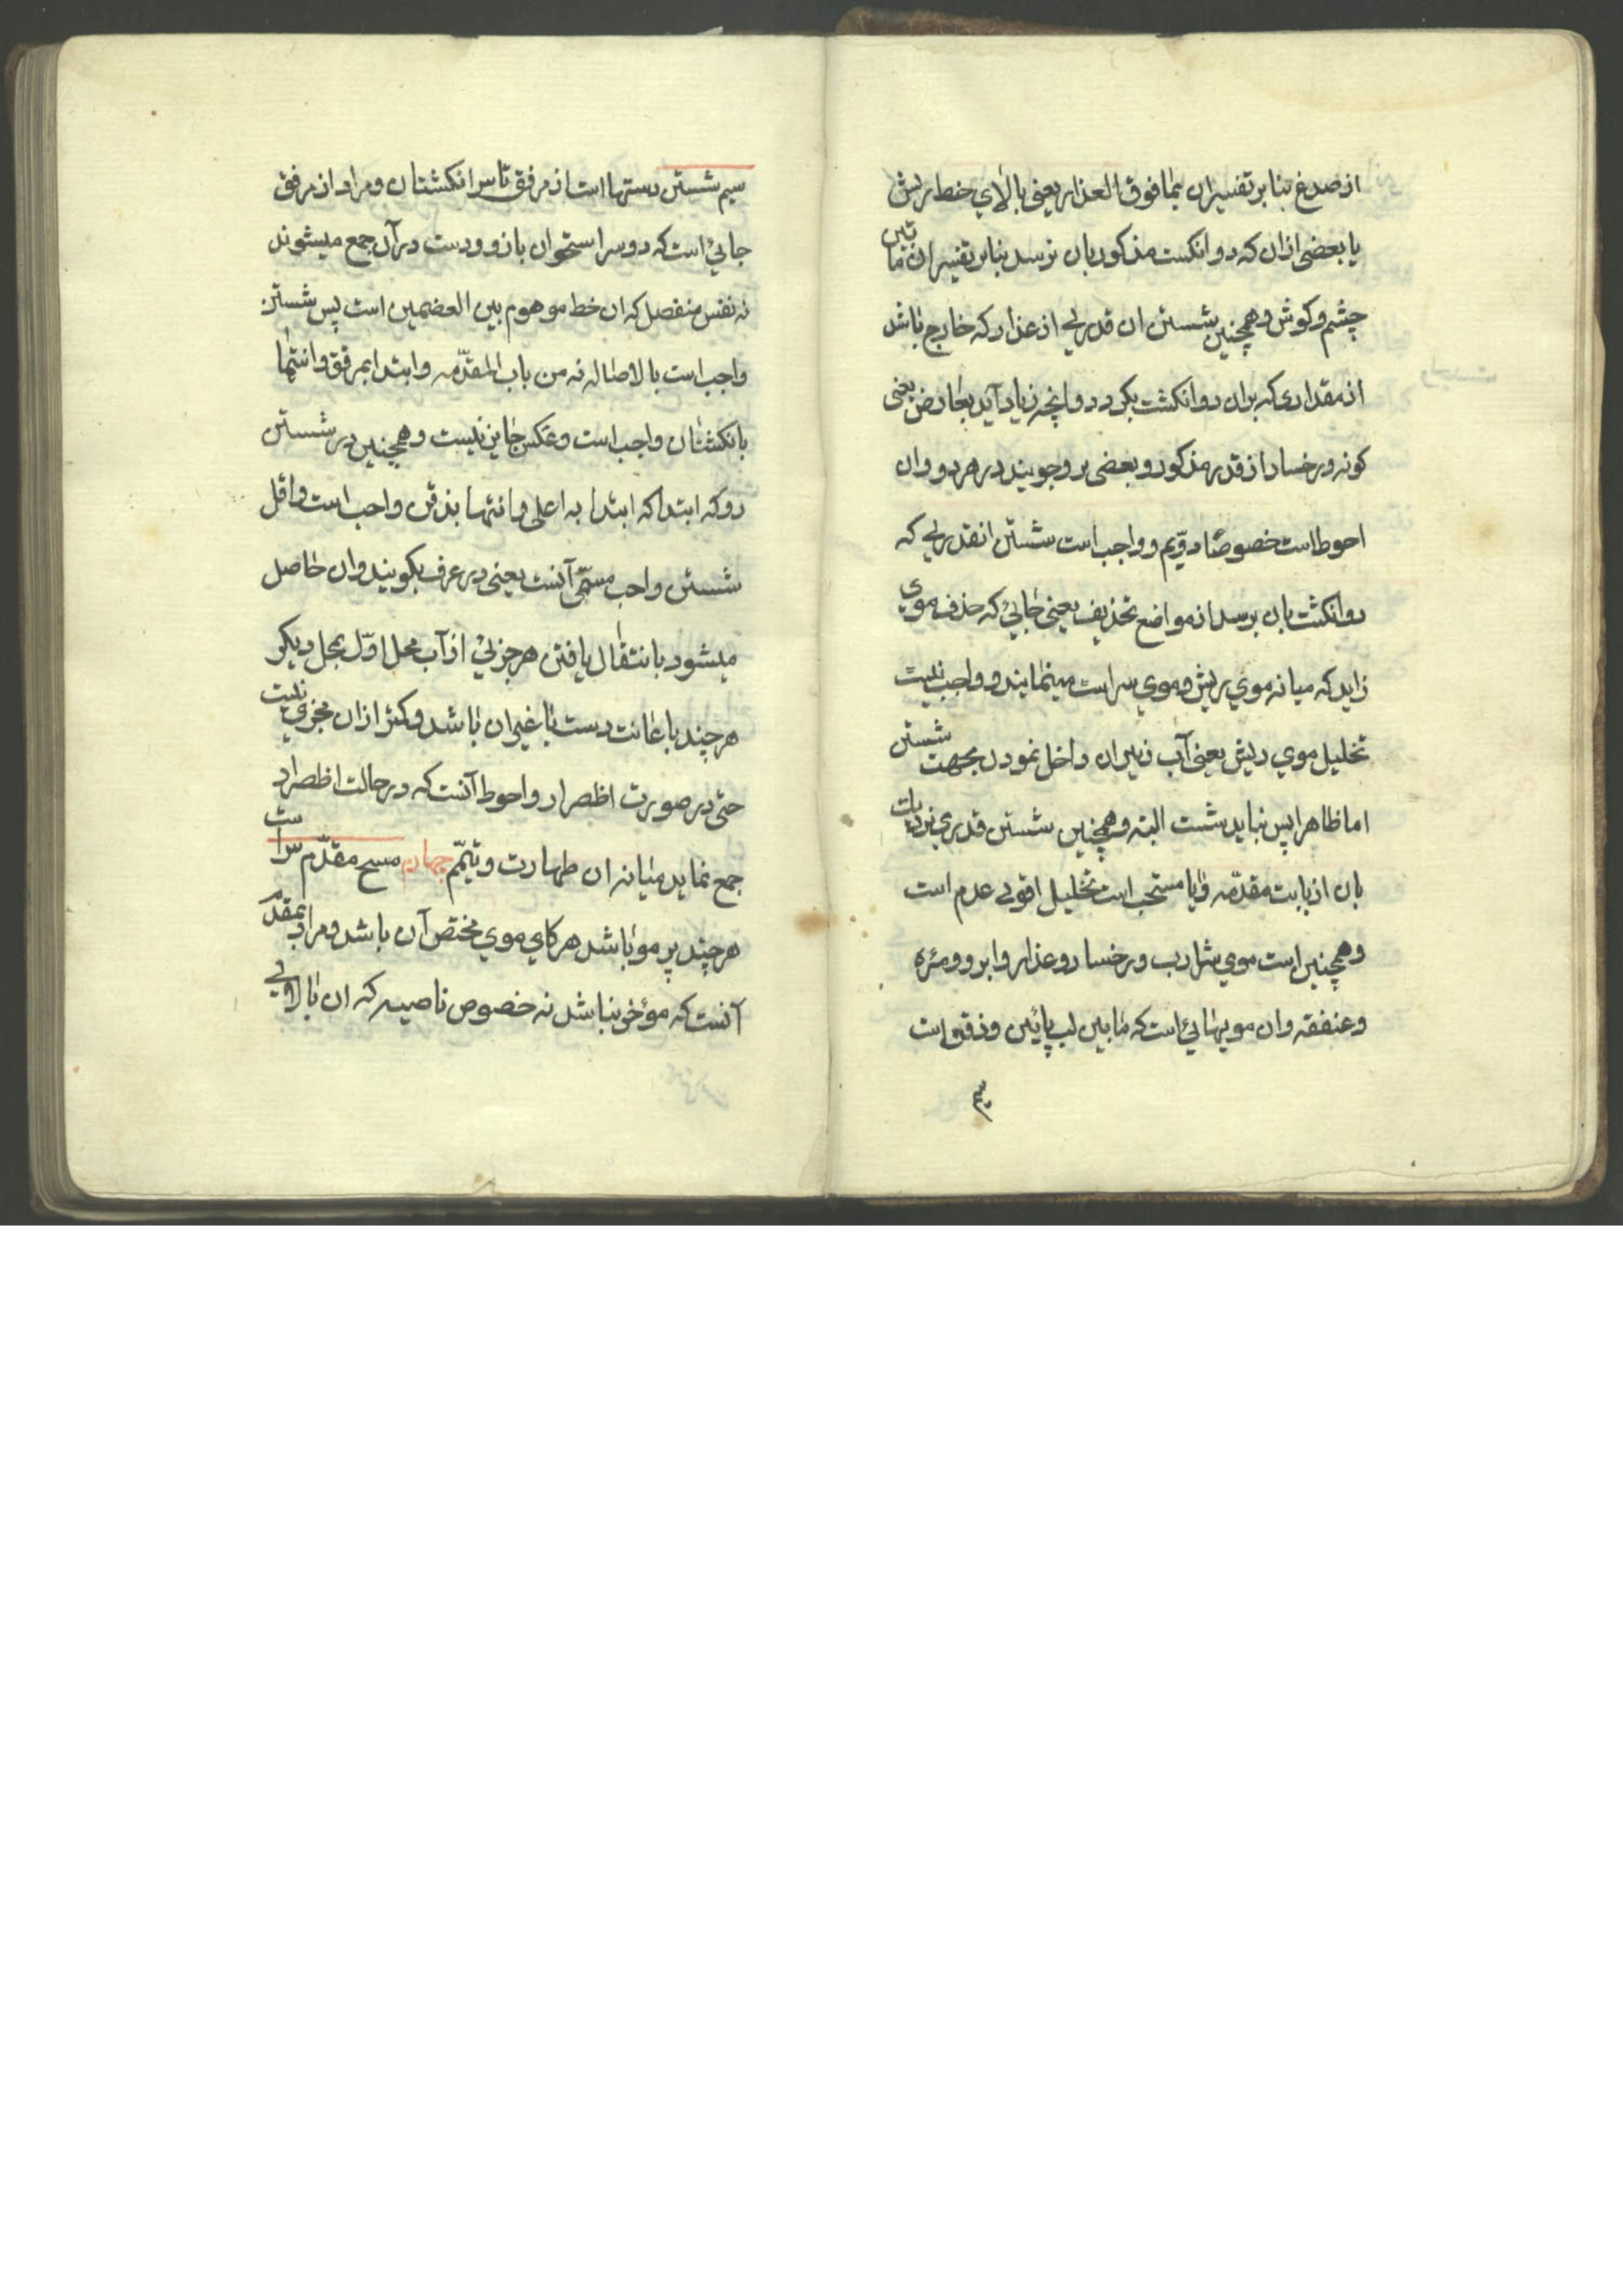 از صدغ بنا بر تفسیر ان بما فوق العذار یعنی بالای خط ریش
یا بعضی ازان که دو انکست مذکور بان نرسد بنا بر تفسیر ان مابین
چشم و کوش و همچنین شستن ان قدری از عذار که خارج باشد
از مقداری که بران دو انکشت بکردد و انچه زیاد آید بعارض یعنی
کونه و رخسار از قدر مذکور و بعضی بر وجوبیند در هر دو و ان
احوط است خصوصًا دوّیم و واجب است شستن انقدری که
دو انکشت بان برسد از مواضع تحذیف یعنی جایی که حذف موی
زاید که میانه موی ریش و موی سر است مینمایند و واجب نیست
تخلیل موی ریش یعنی آب زیر ان داخل نمودن بجهت شستن
اما ظاهرا پس نباید شست البته و همچنین شستن قدری نزدیک
بان از بابت مقدّمه و ایا مستحب است تخلیل اقوی عدم است
و همچنین است موی شارب و رخسار و عذار و ابرو و مژه
و عنفقه و ان مویهائی است که مابین لب پائین و ذقن است
سیم
سیم شستن دستها است از مرفق تا سر انکشتان و مراد از مرفق
جایی است که دو سر استخوان بازو و دست در آن جمع میشوند
نه نفس منفصل که ان خط موهوم بین العضمین است پس شستن
واجب است بالاصاله نه من باب المقدّمه و ابتدا بمرفق و انتها
بانکشتان واجب است و عکس جایز نیست و همچنین در شستن
رو که ابتدا که ابتدا به اعلی و انتها بذقن واجب است و اقل
شستن واجب مسمّی آنست یعنی در عرف بکویند و ان حاصل
میشود بانتقال یافتن هر جزئی از آب محل اوّل بمحل دیکر
هر چند باعانت دست یا غیر ان باشد و کمتر ازان مجزی نیست
حتی در صورت اظصرار و احوط آنست که در حالت اظصرار
جمع نماید میانه ان طهارت و تیمّم چهارم مسح مقدّم سر است
هر چند پر مو باشد هر کاه موی مختص آن باشد و مراد بمقدّم
آنست که مؤخر نباشد نه خصوص ناصیه که ان بالای